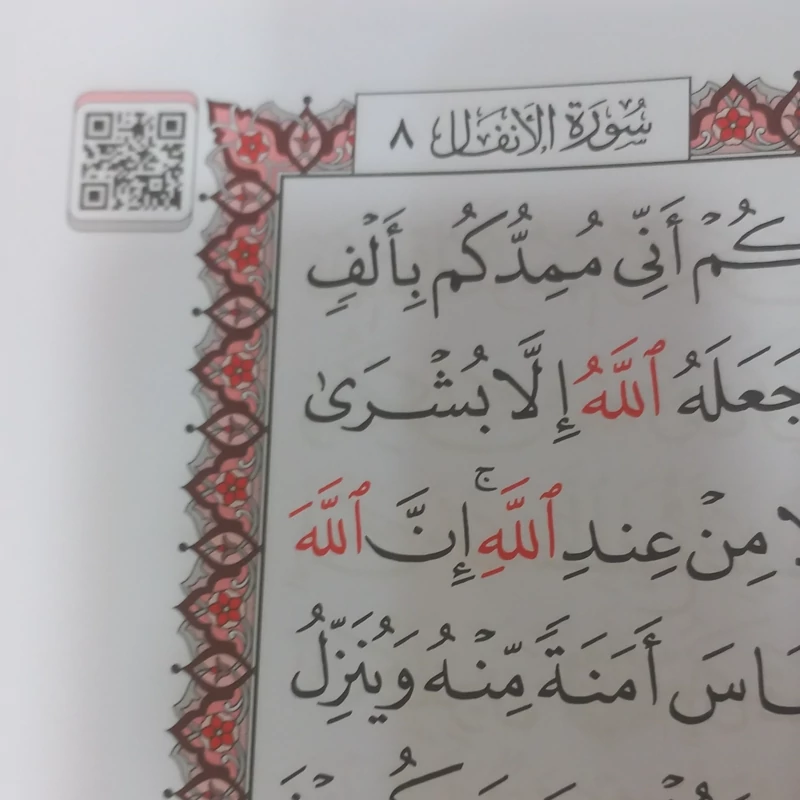 سُورَةُ الأَنفَالِ ٨
كُمْ أَنِّي مُمِدُّكُم بِأَلْفٍ
جَعَلَهُ ٱللَّهُ إِلَّا بُشْرَىٰ
مِنْ عِندِ ٱللَّهِۚ إِنَّ ٱللَّهَ
اسَ أَمَنَةً مِّنْهُ وَيُنَزِّلُ